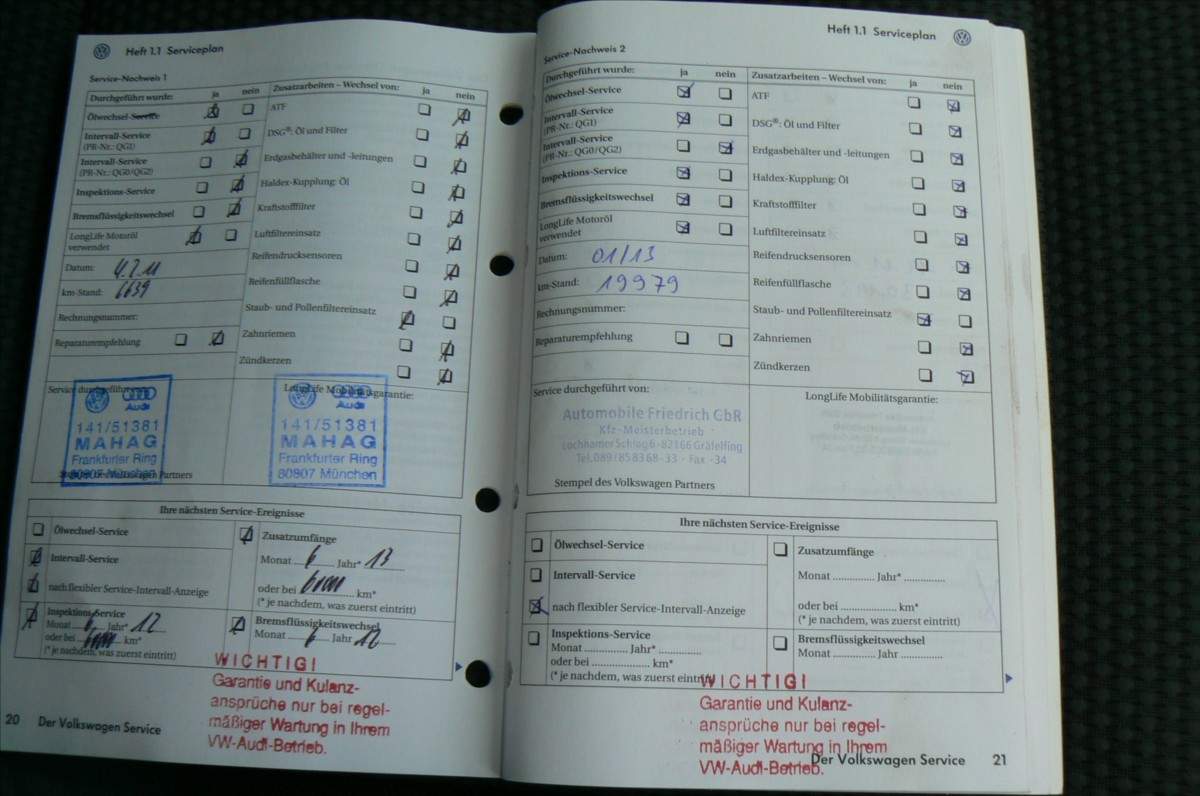 Heft 1.1 Serviceplan
Service-Nachweis 1
Durchgeführt wurde: ja nein
Ölwechsel-Service
Intervall-Service
(PR-Nr.: QG1)
Intervall-Service
(PR-Nr.: QG0/QG2)
Inspektions-Service
Bremsflüssigkeitswechsel
LongLife Motoröl
verwendet
Datum: 4.7.11
km-Stand: 6639
Rechnungsnummer:
Reparaturempfehlung
Zusatzarbeiten – Wechsel von: ja nein
ATF
DSG®: Öl und Filter
Erdgasbehälter und -leitungen
Haldex-Kupplung: Öl
Kraftstofffilter
Luftfiltereinsatz
Reifendrucksensoren
Reifenfüllflasche
Staub- und Pollenfiltereinsatz
Zahnriemen
Zündkerzen
Service durchgeführt
Audi
141/51381
MAHAG
Frankfurter Ring
80807 München
Volkswagen Partners
LongLife Mobilitätsgarantie:
Audi
141/51381
MAHAG
Frankfurter Ring
80807 München
Ihre nächsten Service-Ereignisse
Ölwechsel-Service
Intervall-Service
nach flexibler Service-Intervall-Anzeige
Inspektions-Service
Monat 6 Jahr* 12
oder bei km*
(* je nachdem, was zuerst eintritt)
Zusatzumfänge
Monat 6 Jahr* 13
oder bei km*
(* je nachdem, was zuerst eintritt)
Bremsflüssigkeitswechsel
Monat 6 Jahr 12
WICHTIG!
Garantie und Kulanz-
ansprüche nur bei regel-
mäßiger Wartung in Ihrem
VW-Audi-Betrieb.
20 Der Volkswagen Service
Heft 1.1 Serviceplan
Service-Nachweis 2
Durchgeführt wurde: ja nein
Ölwechsel-Service
Intervall-Service
(PR-Nr.: QG1)
Intervall-Service
(PR-Nr.: QG0/QG2)
Inspektions-Service
Bremsflüssigkeitswechsel
LongLife Motoröl
verwendet
Datum: 01/13
km-Stand: 19979
Rechnungsnummer:
Reparaturempfehlung
Zusatzarbeiten – Wechsel von: ja nein
ATF
DSG®: Öl und Filter
Erdgasbehälter und -leitungen
Haldex-Kupplung: Öl
Kraftstofffilter
Luftfiltereinsatz
Reifendrucksensoren
Reifenfüllflasche
Staub- und Pollenfiltereinsatz
Zahnriemen
Zündkerzen
Service durchgeführt von:
Automobile Friedrich GbR
Kfz-Meisterbetrieb
Lochhamer Schlag 6 - 82166 Gräfelfing
Tel. 089/85 83 68-33 · Fax -34
Stempel des Volkswagen Partners
LongLife Mobilitätsgarantie:
Ihre nächsten Service-Ereignisse
Ölwechsel-Service
Intervall-Service
nach flexibler Service-Intervall-Anzeige
Inspektions-Service
Monat ............... Jahr* ...............
oder bei ..................... km*
(* je nachdem, was zuerst eintritt)
Zusatzumfänge
Monat ............... Jahr* ...............
oder bei ..................... km*
(* je nachdem, was zuerst eintritt)
Bremsflüssigkeitswechsel
Monat ............... Jahr ...............
WICHTIG!
Garantie und Kulanz-
ansprüche nur bei regel-
mäßiger Wartung in Ihrem
VW-Audi-Betrieb.
Der Volkswagen Service 21